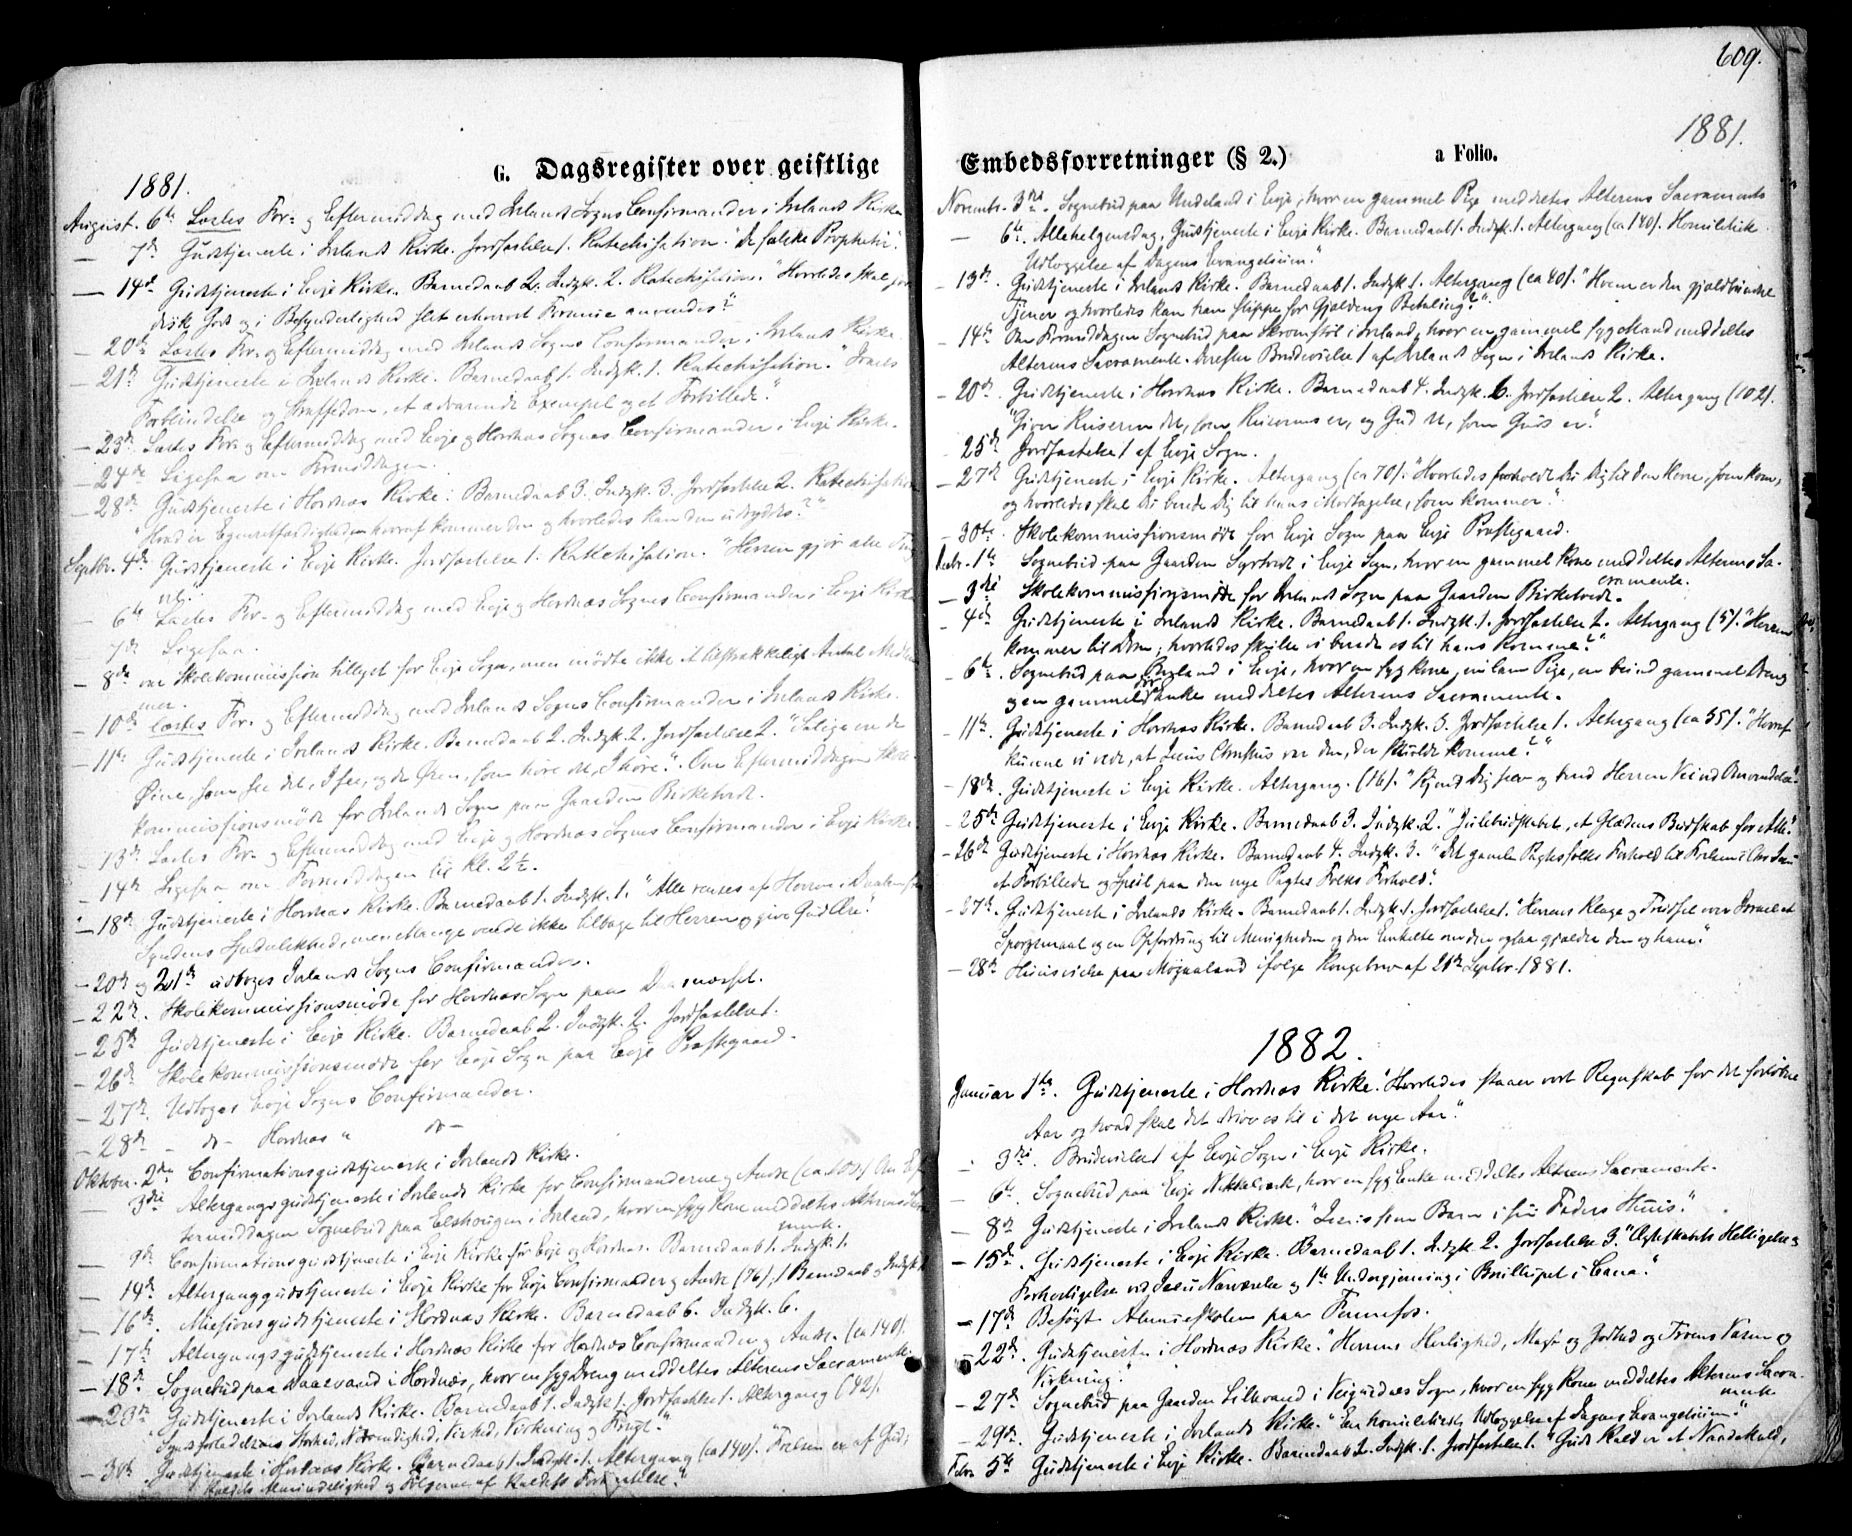 1881.
G. Dagsregister over geistlige
August. 6te Læstes For- og Eftermiddag med Ivelands Sogns Confirmander i Ivelands Kirke
— 7de Gudstjeneste i Ivelands Kirke. Jordfæstelse 1. Katechisation. "De falske Propheter."
— 14de Gudstjeneste i Evje Kirke. Barnedaab 2. Indgk. 2. Katechisation. "Hvorledes skal
Gods og i Besynderlighed slet erhvervet Formue anvendes?"
— 20de Læstes For- og Eftermiddag med Ivelands Sogns Confirmander i Ivelands Kirke.
— 21de Gudstjeneste i Ivelands Kirke. Barnedaab 1. Indgk. 1. Katechisation. "Israels
Forblindelse og Straffedom, et advarende Exempel og et Forbillede."
— 23de Læstes For- og Eftermiddag med Evje og Hordnæs Sognes Confirmander i Evje Kirke.
— 24de Ligesaa om Formiddagen.
— 28de Gudstjeneste i Hornæs Kirke. Barnedaab 3. Indgk. 3. Jordfæstelse 2. Katechisation
"Hvad er Egenretfærdigheden hvoraf kommer den og hvorledes kan den udryddes?"
Septbr. 4de Gudstjeneste i Evje Kirke. Jordfæstelse 1. Katechisation. "Herren gjør alle Ting
vel."
— 6te Læstes For- og Eftermiddag med Evje og Hordnæs Sognes Confirmander i Evje Kirke
— 7de Ligesaa.
— 8de var Skolekommission tillyst for Evje Sogn, men mødte ikke et tilstrækkeligt Antal Medlem-
mer.
— 10de Læstes For- og Eftermiddag med Ivelands Sogns Confirmander i Ivelands Kirke.
— 11te Gudstjeneste i Ivelands Kirke. Barnedaab 2. Indgk. 2. Jordfæstelse 2. "Salige ere de
Øine, som see det, I see, og de Øren, som høre det, I høre." Om Eftermiddagen Skole-
kommissionsmøde for Ivelands Sogn paa Gaarden Birketvedt.
— 13de Læstes For- og Eftermiddag med Evje og Hordnæs Sognes Confirmander i Evje Kirke
— 14de Ligesaa om Formiddagen til Kl. 2½.
— 18de Gudstjeneste i Hordnæs Kirke. Barnedaab 1. Indgk. 1. "Alle renses af Herren i Daaben fra
Syndens Spedalskhed, men Mange vende ikke tilbage til Herren og give Gud Ære."
— 20de og 21de udtoges Ivelands Sogns Confirmander.
— 22de. Skolekommissionsmøde for Hordnæs Sogn paa
— 25de Gudstjeneste i Evje Kirke. Barnedaab 2. Indgk. 2. Jordfæstelse 1.
— 26de Skolekommissionsmøde for Evje Sogn paa Evje Præstegaard.
— 27de. Udtoges Evje Sogns Confirmander.
— 28de — do — Hordnæs " do —
Oktober. 2den Confirmationsgudstjeneste i Ivelands Kirke.
— 3die Altergangsgudstjeneste i Ivelands Kirke for Confirmanderne og Andre Om Ef-
termiddagen Sognebud paa i Iveland, hvor en syg Kone meddeltes Alterens Sakra-
mente.
— 9de Confirmationsgudstjeneste i Evje Kirke for Evje og Hordnæs. Barnedaab 1. Indgk. 1.
— 14de Altergangsgudstjeneste i Evje Kirke for Evje Confirmander og Andre (76). 1 Barnedaab og Indgk.
— 16de. Missionsgudstjeneste i Hordnæs Kirke. Barnedaab 6. Indgk. 6.
— 17de Altergangsgudstjeneste i Hordnæs Kirke for Hordnæs Confirmander og Andre. (ca 140).
— 18de Sognebud paa i Hordnæs, hvor en syg Dreng meddeltes Alterens Sacramente.
— 23de Gudstjeneste i Ivelands Kirke. Barnedaab 1. Indgk 1. Jordfæstelse 1. Altergang (42).
"Syndsforladelsens Storhed, Nødvendighed, Vished, Virkning og Frugt."
— 30te Gudstjeneste i Hordnæs Kirke. Barnedaab 1. Indgk. 1. Altergang (ca 140). "Frelsen er af Gud;
Kaldets Almindelighed og Følgerne af Kaldets Forkastelse."
609.
1881.
Embedsforretninger (§ 2.) a Folio.
Novembr. 3die. Sognebud paa i Evje, hvor en gammel Pige meddeltes Alterens Sacramente
— 6te. Allehelgensdag. Gudstjeneste i Evje Kirke. Barnedaab 1. Indgk. 1. Altergang (ca 140). Homiletisk
Udlæggelse af Dagens Evangelium."
— 13de. Gudstjeneste i Ivelands Kirke. Barnedaab 1. Indgk 1. Altergang (ca 40). "Hvem er den gjældbundne
Tjener og hvorledes kan han slippe for Gjældens Betaling?"
— 14de Om Formiddagen Sognebud paa i Iveland, hvor en gammel syg Mand meddeltes
Alterens Sacramente. Derefter Brudevielse 1 af Ivelands Sogn i Ivelands Kirke.
— 20de. Gudstjeneste i Hordnæs Kirke. Barnedaab 4. Indgk. 6. Jordfæstelse 2. Altergang (102).
"Giver Keiseren det, som Keiserens er, og Gud det, som Guds er."
— 25de Jordfæstelse 1 af Evje Sogn.
— 27de Gudstjeneste i Evje Kirke. Altergang (ca 70). "Hvorledes forholdt Du Dig til den Herre, som kom,
og hvorledes skal Du berede Dig til hans Modtagelse, som kommer."
— 30te. Skolekommissionsmøde for Evje Sogn paa Evje Præstegaard.
Decbr. 1te Sognebud paa Gaarden Syrtveit i Evje Sogn, hvor en gammel Kone meddeltes Alterens Sa-
cramente.
— 3die Skolekommissionsmøde for Ivelands Sogn paa Gaarden Birketvedt.
— 4de Gudstjeneste i Ivelands Kirke. Barnedaab 1. Indgk. 1. Jordfæstelse 2. Altergang (5). "Herren
kommer til Dom; hvorledes skulle vi berede os til hans Komme?"
— 6te. Sognebud paa i Evje, hvor en syg Kone, en lam Pige, en blind gammel Dreng
og en gammel Enke meddeltes Alterens Sacramente.
— 11te. Gudstjeneste i Hordnæs Kirke. Barnedaab 3. Indgk. 3. Jordfæstelse 1. Altergang (ca 35). "Hvoraf
kunne vi vide, at Jesus Christus var den, der skulde komme?"
— 18de. Gudstjeneste i Evje Kirke. Altergang. (16). "Kjend Dig selv og bered Herren Vei ved Omvendelse."
— 25de Gudstjeneste i Evje Kirke. Barnedaab 3. Indgk. 2. "Julebudskabet, et Glædens Budskab for Alle."
— 26de Gudstjeneste i Hordnæs Kirke. Barnedaab 4. Indgk. 3. "Det gamle Pagtesfolks Forhold til Frelseren
et Forbillede og Speil paa den nye Pagtes Folks Forhold."
— 27de. Gudstjeneste i Ivelands Kirke. Barnedaab 1. Indgk. 1. Jordfæstelse 1. "Herrens Klage og Trudsel over Israel et
Spørgsmaal og en Opfordring til Menigheden og den Enkelte om den ogsaa gjælder den og ham."
— 28de Huusvielse paa ifølge Kongebrev af Septbr. 1881.
1882.
Januar 1te. Gudstjeneste i Hordnæs Kirke. "Hvorledes staaer vort Regnskab for det forløbne
Aar og hvad skal det drive os til i det nye Aar."
— 3die. Brudevielse 1 af Evje Sogn i Evje Kirke.
— 6te. Sognebud paa Evje Nikkelværk, hvor en syg Enke meddeltes Alterens Sacramente.
— 8de Gudstjeneste i Ivelands Kirke. "Jesus som Barn i sin Faders Huus."
— 15de. Gudstjeneste i Evje Kirke. Barnedaab 1. Indgk 2. Jordfæstelse 3. "Ægteskabets Helligelse og
Forherligelse ved Jesu Nærværelse og 1te Undergjerning i Brylluppet i Cana."
— 17de Besøgt Almueskolen paa Fennefos.
— 22de. Gudstjeneste i Hordnæs Kirke. "Herrens Herlighed, Magt og Godhed og Troens Væsen og
Virkning."
— 27de Sognebud paa Gaarden i Sogn, hvor en syg Kone meddeltes Alterens Sacra-
mente
— 29de. Gudstjeneste i Ivelands Kirke. "En homiletisk Udlæggelse af Dagens Evangelium."
Febr. 5te Gudstjeneste i Evje Kirke. Barnedaab 2. Indgk. 1. Jordfæstelse 1. "Guds Kald er et Naadekald,